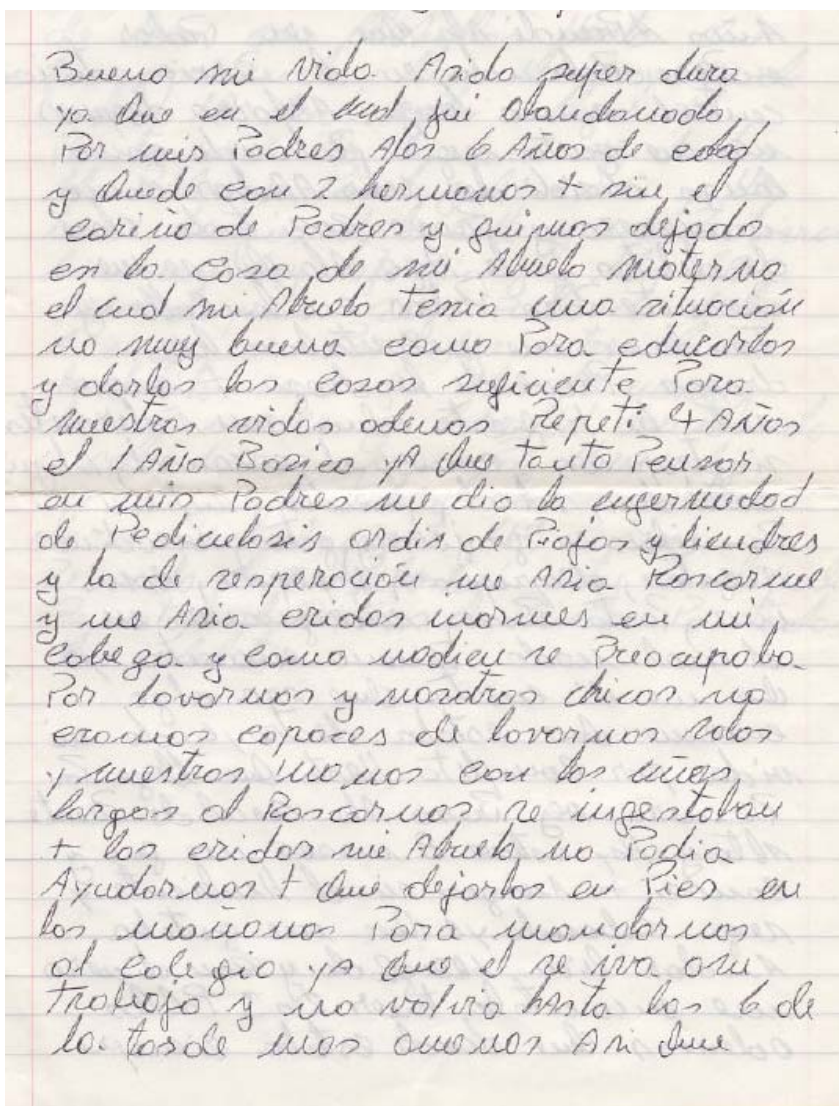 Bueno mi vida Asido super dura
ya que en el cual fui abandonado
Por mis Padres Alos 6 Años de edad
y quede con 2 hermanos + sin el
cariño de Padres y fuimos dejado
en la casa de mi Abuelo materno
el cual mi Abuelo tenia una situación
no muy buena como Para educarlos
y darlos las cosas suficiente Para
nuestras vidas ademas Repeti 4 Años
el 1 Año Basico yA que tanto Pensar
en mis Padres me dio la enfermedad
de Pediculosis ardis de Piojos y liendres
y la de resperación me Asia Rascarme
y me Asia eridas inormes en mi
cabega y como nadien se Preocupaba
Por lavarnos y nosotros chicos no
eramos capaces de lavarnos solos
y nuestras manos con las uñas
largas al Rascarnos se infestaban
+ las eridas mi Abuelo no Podia
Ayudarnos + que dejarlos en Pies en
las mañanas Para mandarnos
al colegio yA que el se iva asu
trabajo y no volvia hAsta las 6 de
la tarde mas omenos Asi que